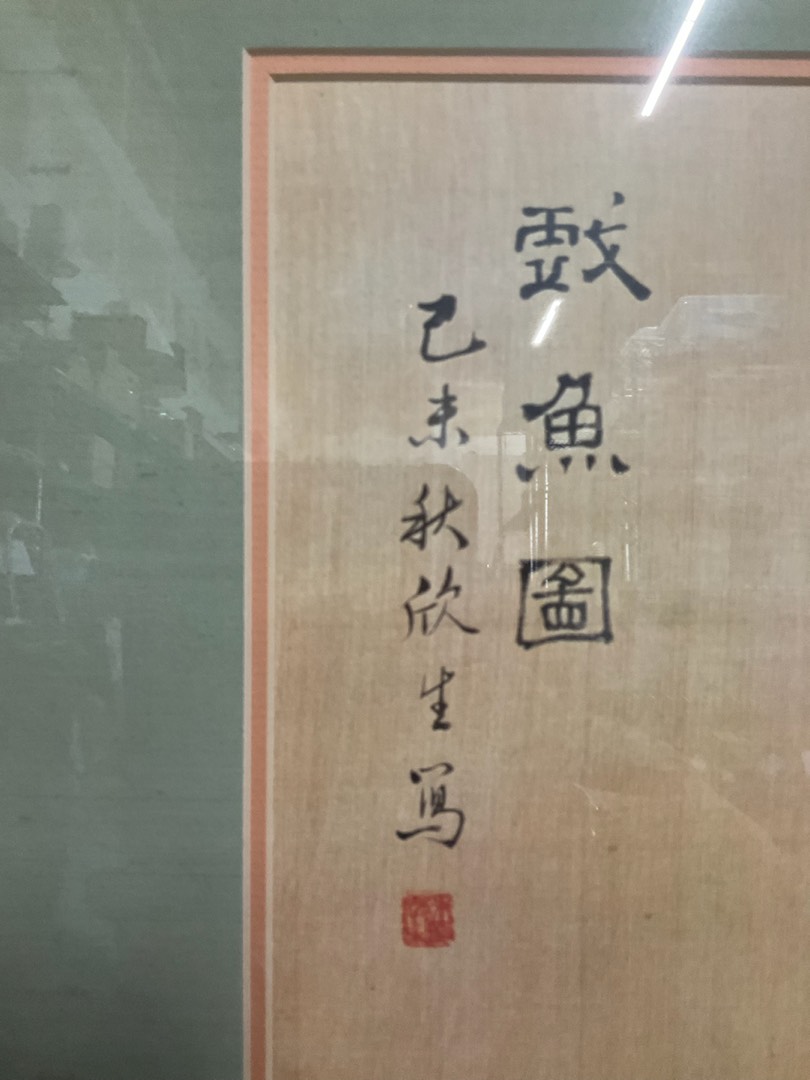 戯魚圖
己未秋欣生寫